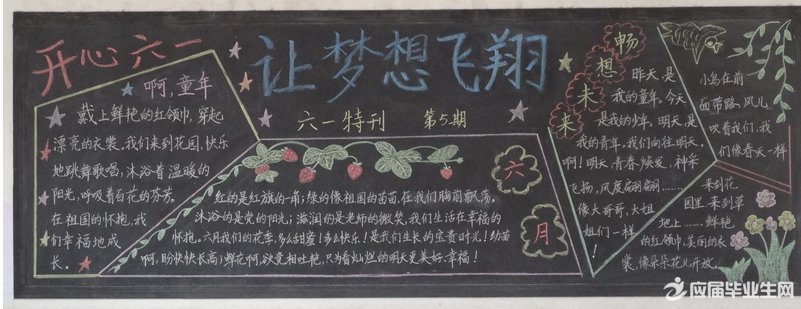 开心六一
让梦想飞翔
六一特刊 第5期
啊,童年
戴上鲜艳的红领巾,穿起
漂亮的衣裳。我们来到花园,快乐
地跳舞歌唱,沐浴着温暖的
阳光,呼吸着百花的芬芳。
在祖国的怀抱,我
们幸福地成
长。
六月
红的是红旗的一角;绿的像祖国的苗苗,在我们胸前飘荡。
沐浴的是党的阳光;滋润的是老师的微笑,我们生活在幸福的
怀抱。六月我们的花季,多么甜蜜!多么快乐!是我们生长的宝贵时光!幼苗
啊,盼快快长高;鲜花啊,欲竞相吐艳,只为着灿烂的明天更美好、幸福!
畅想未来
昨天,是
我的童年,今天
是我的少年,明天,是
我的青年,我们向往明天。
啊!明天,青春焕发,神采
飞扬,风度翩翩……
像大哥哥,大姐
姐们一样
小鸟在前
面带路,风儿
吹着我们,我
们像春天一样
来到花
园里,来到草
地上……鲜艳
的红领巾,美丽的衣
裳,像朵朵花儿开放。
应届毕业生网